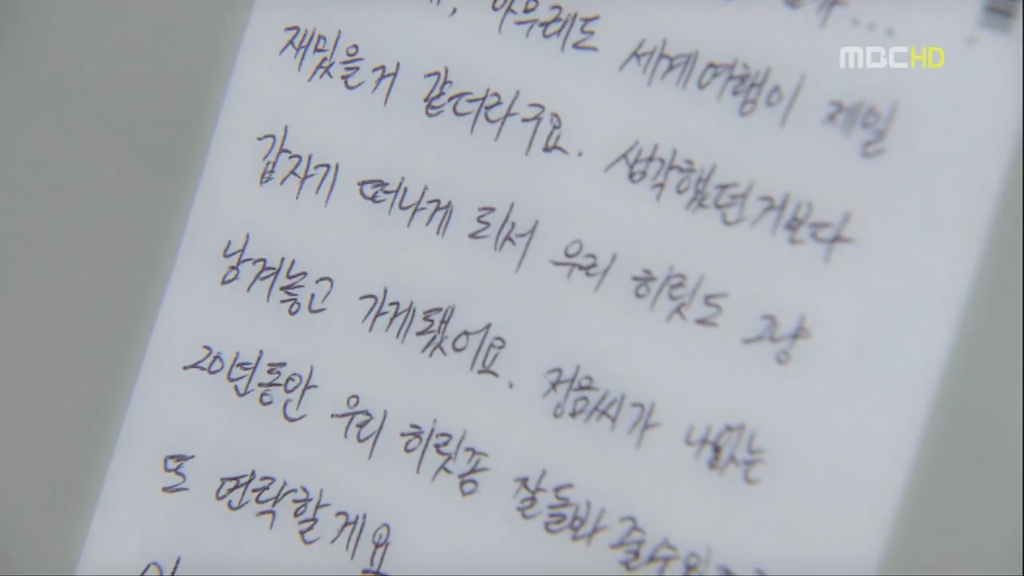 아무래도 세계여행이 제일
MBC HD
재밌을거 같더라구요. 생각했던거보다
갑자기 떠나게 되서 우리 히릿도 그냥
남겨놓고 가게됐어요. 정음씨가 나없는
20년동안 우리 히릿좀 잘돌봐 줄수
또 연락할게요